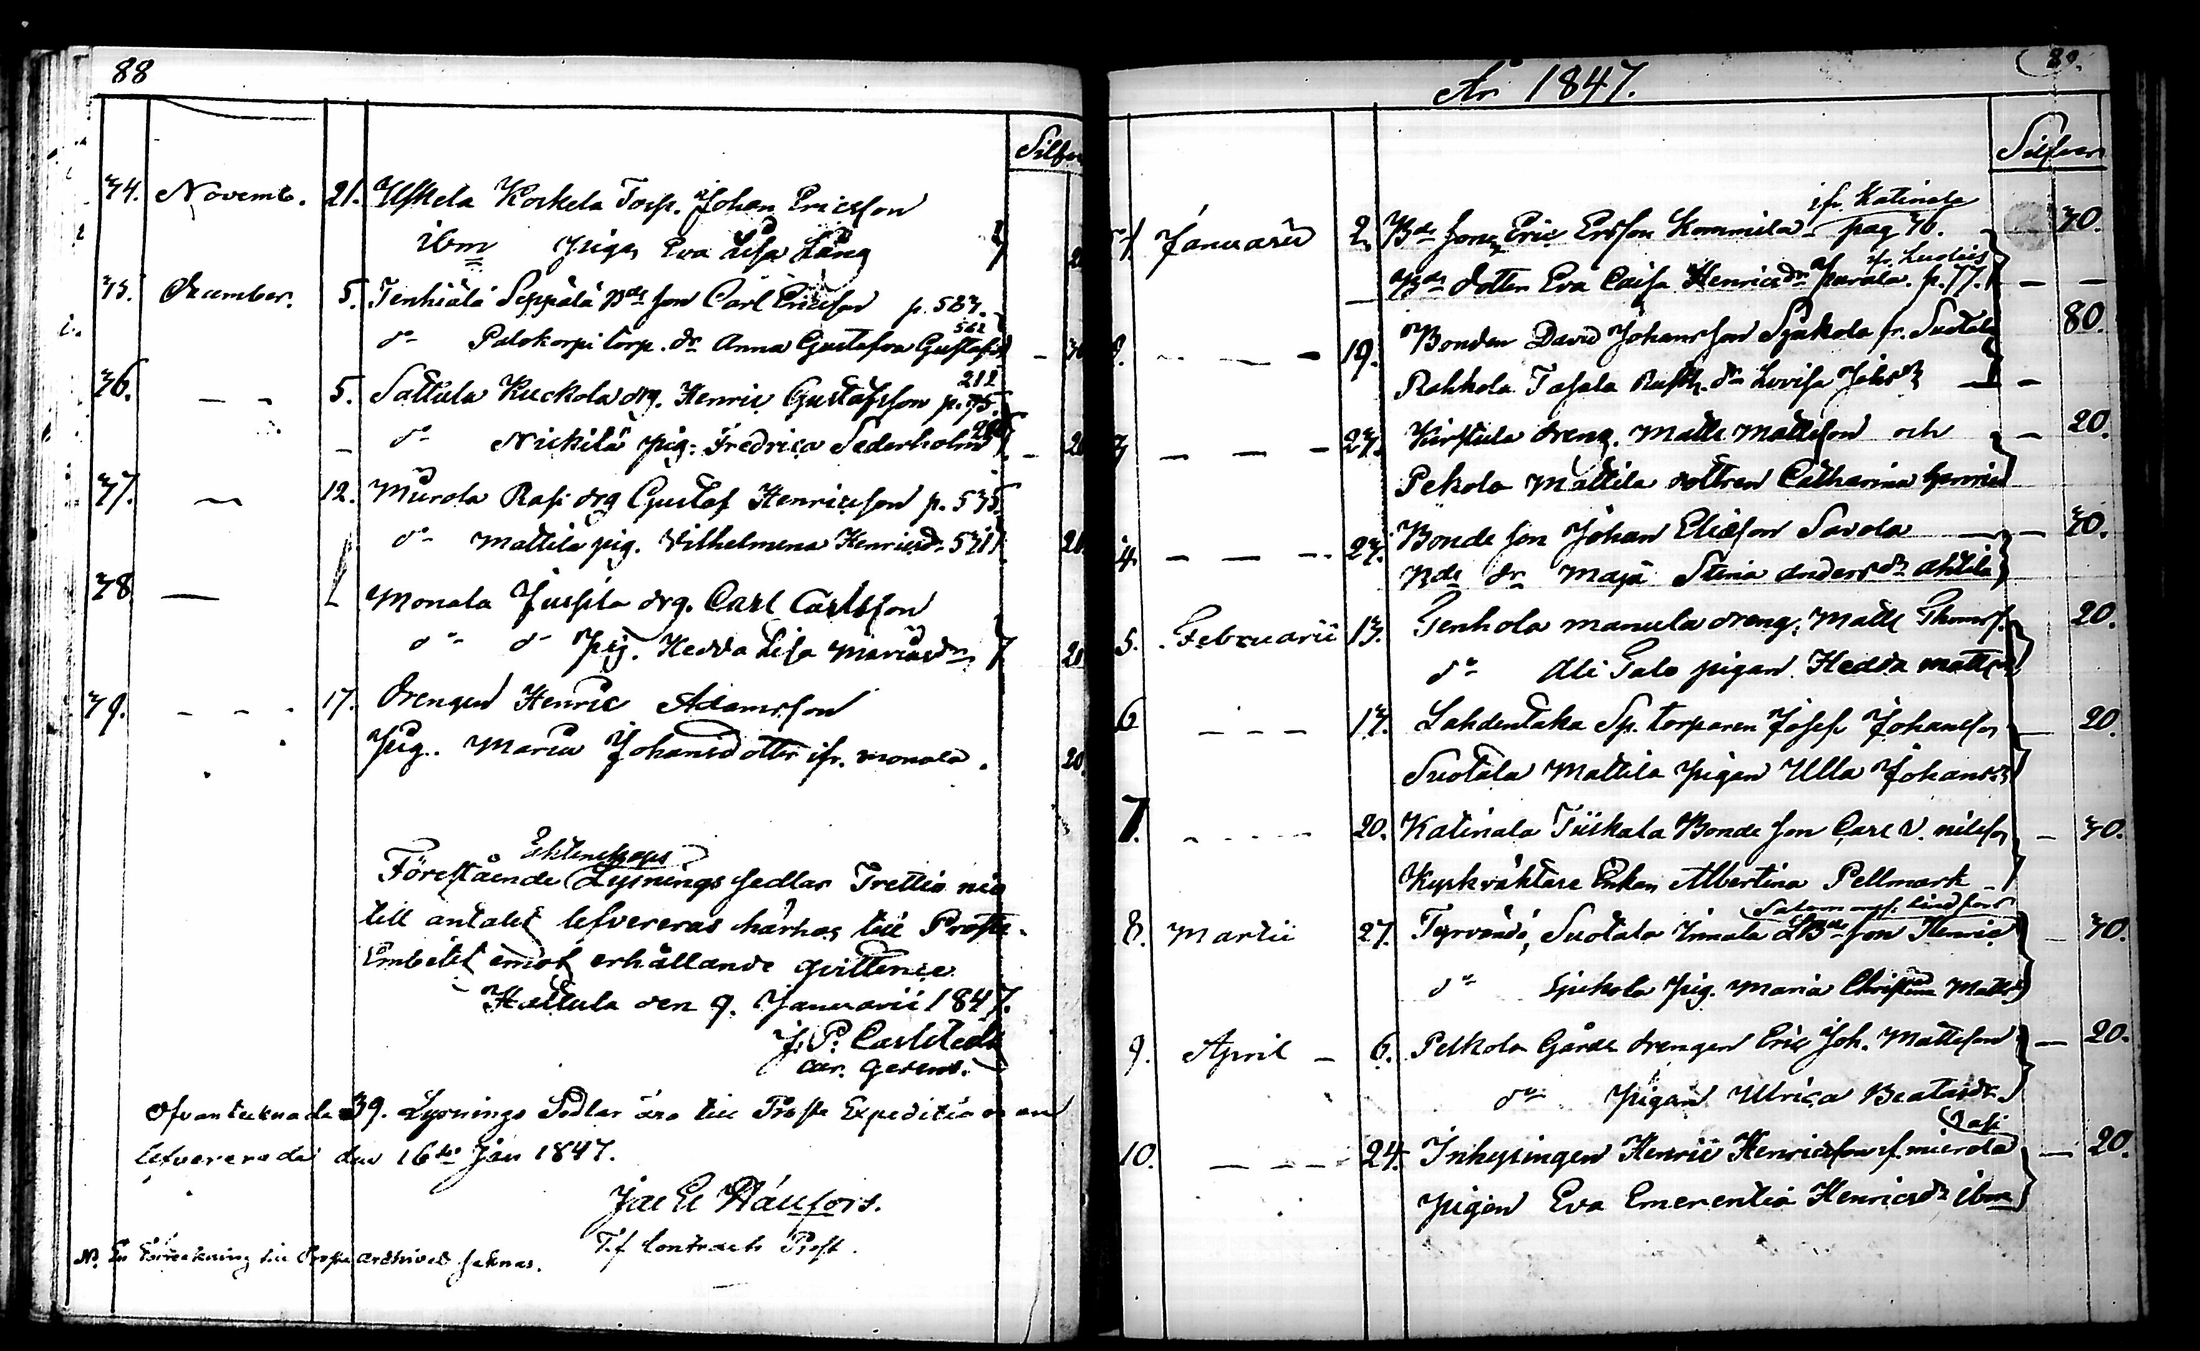 88
Silfver
34. Novemb. 21. Ilskela Korkela Torp. Johan Ericsson
ibm pigan Eva Lisa Lång
35. December. 5. Tenhiälä Seppälä Bde son Carl Ericsson p. 587.
562
do Palokorpi torp. dr Anna Gustafva Gustafsd
211
36. — — 5. Sattula Kuckola drg. Henric Gustafsson
do Nickilä pig. Fredrica Sederholm
37. — 12. Murola Rasi drg Gustaf Henricsson p. 575
do Mattila pig. Vilhelmena Henricsdr. 571
38 — Monala Jussila drg. Carl Carlsson
do do pig. Hedda Lisa Mariasdr 20
39. - - - 17. Drengen Henric Adamsson
Pig. Maria Johansdotter ifr. Monala. 20
Ektenskaps
Förestående Lysnings sedlar Trettio nio
till antalet lefvereras härhos till Prosts-
Embetet emot erhållande qvittence
Hattula den 9. Januarii 1847.
J. P. Carlstedt
Ofvantecknade 39. Lysnings Sedlar äro till Prosts Expeditionen
lefvererade den 16de Jan 1847.
T.f. Contracts Prost.
89.
År 1847.
Silfver
ifr. Katinala
1. Januarii 2. Bde sonen Eric Ersson Kommila pag 76. 70.
Bde dotter Eva Caisa Henricsdr Parola. p. 77. — —
— — - 19. Bonden David Johansson Sjukola fr. Suotala 80.
Rahkola Tasala Rusth. dr Lovisa Johsdr — —
— — - 27. Kirstula dreng. Matts Mattsson och — 20.
Pekola Mattila dottren Catharina Henricsd
4. — — - 27. Bonde son Johan Eliasson Savola — 70.
Bde dr Maja Stina Andersdr Ahtila
5. Februarii 13. Tenhola Manula dreng. Matts Thomss. 20.
do Ali Talo pigan Hedda Mattsd
6 - - - 17. Lahdentaka Sp. torparen Josef Johansson — 20.
Suotala Mattila pigan Ulla Johansdr
7. - - - 20. Katinala Tiiskala Bonde son Carl V. Nilsson — 70.
Kyrkväktare Enkan Albertina Pellmark
8. Martii 27. Tyrvändö, Suotala Innala Bde son Henric — 70.
do Sjukola pig. Maria Christina Mattsd
9. April - 6. Pelkola Gårds drengen Eric Joh. Mattsson — 20.
do pigan Ulrica Beatasdr.
Rasi
10. — — - 24. Inhysingen Henric Henricsson f. Mierola — 20.
pigan Eva Emerentia Henricsdr ibm